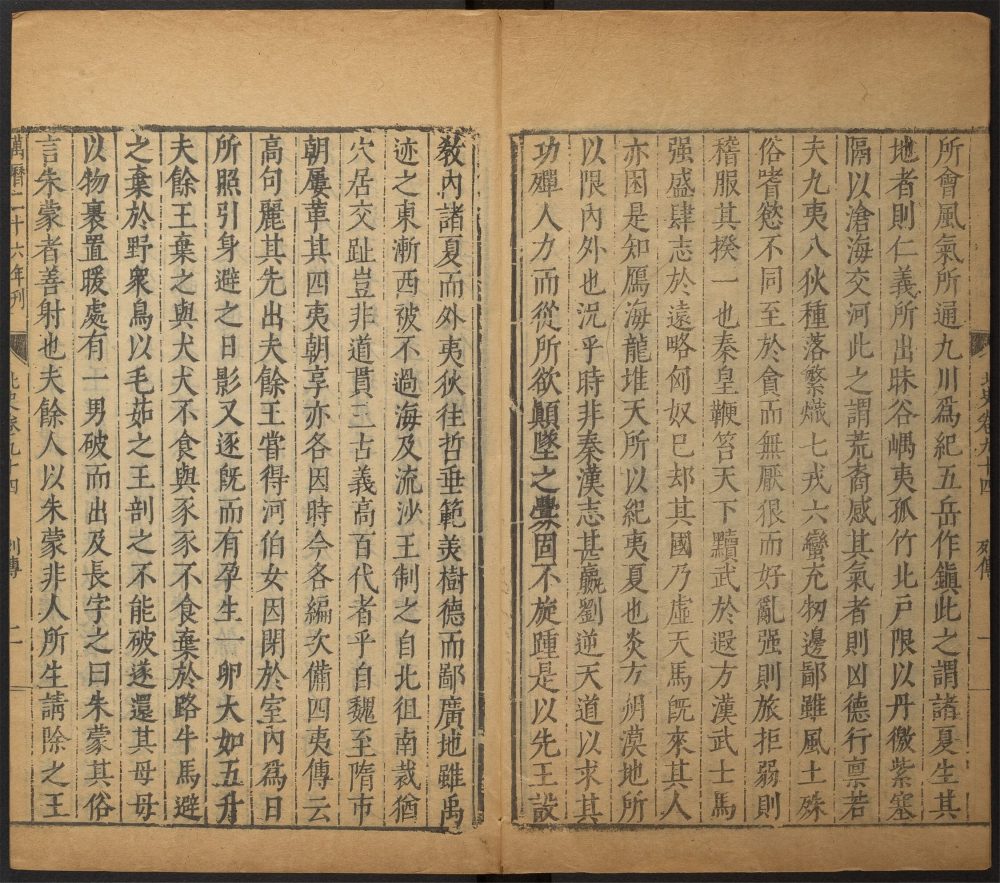 北史卷九十四 列傳 一
所會風氣所通九川爲紀五岳作鎭此之謂諸夏生其
地者則仁義所出昧谷嵎夷孤竹北戶限以丹徼紫塞
隔以滄海交河此之謂荒裔感其氣者則凶德行禀若
夫九夷八狄種落繁熾七戎六蠻充牣邊鄙雖風土殊
俗嗜慾不同至於貪而無厭狠而好亂强則旅拒弱則
稽服其揆一也秦皇鞭笞天下黷武於遐方漢武士馬
强盛肆志於遠略匈奴巳却其國乃虛天馬旣來其人
亦困是知鴈海龍堆天所以紀夷夏也炎方朔漠地所
以限內外也況乎時非秦漢志甚嬴劉逆天道以求其
功殫人力而從所欲顛墜之舋固不旋踵是以先王設
敎內諸夏而外夷狄往哲垂範美樹德而鄙廣地雖禹
迹之東漸西被不過海及流沙王制之自北徂南裁猶
穴居交趾豈非道貫三古義高百代者乎自魏至隋市
朝屢革其四夷朝享亦各因時今各編次備四夷傳云
高句麗其先出夫餘王嘗得河伯女因閉於室內爲日
所照引身避之日影又逐旣而有孕生一卵大如五升
夫餘王棄之與犬犬不食與豕豕不食棄於路牛馬避
之棄於野衆鳥以毛茹之王剖之不能破遂還其母母
以物裹置暖處有一男破而出及長字之曰朱蒙其俗
言朱蒙者善射也夫餘人以朱蒙非人所生請除之王
萬曆二十六年刊 北史卷九十四 列傳 二